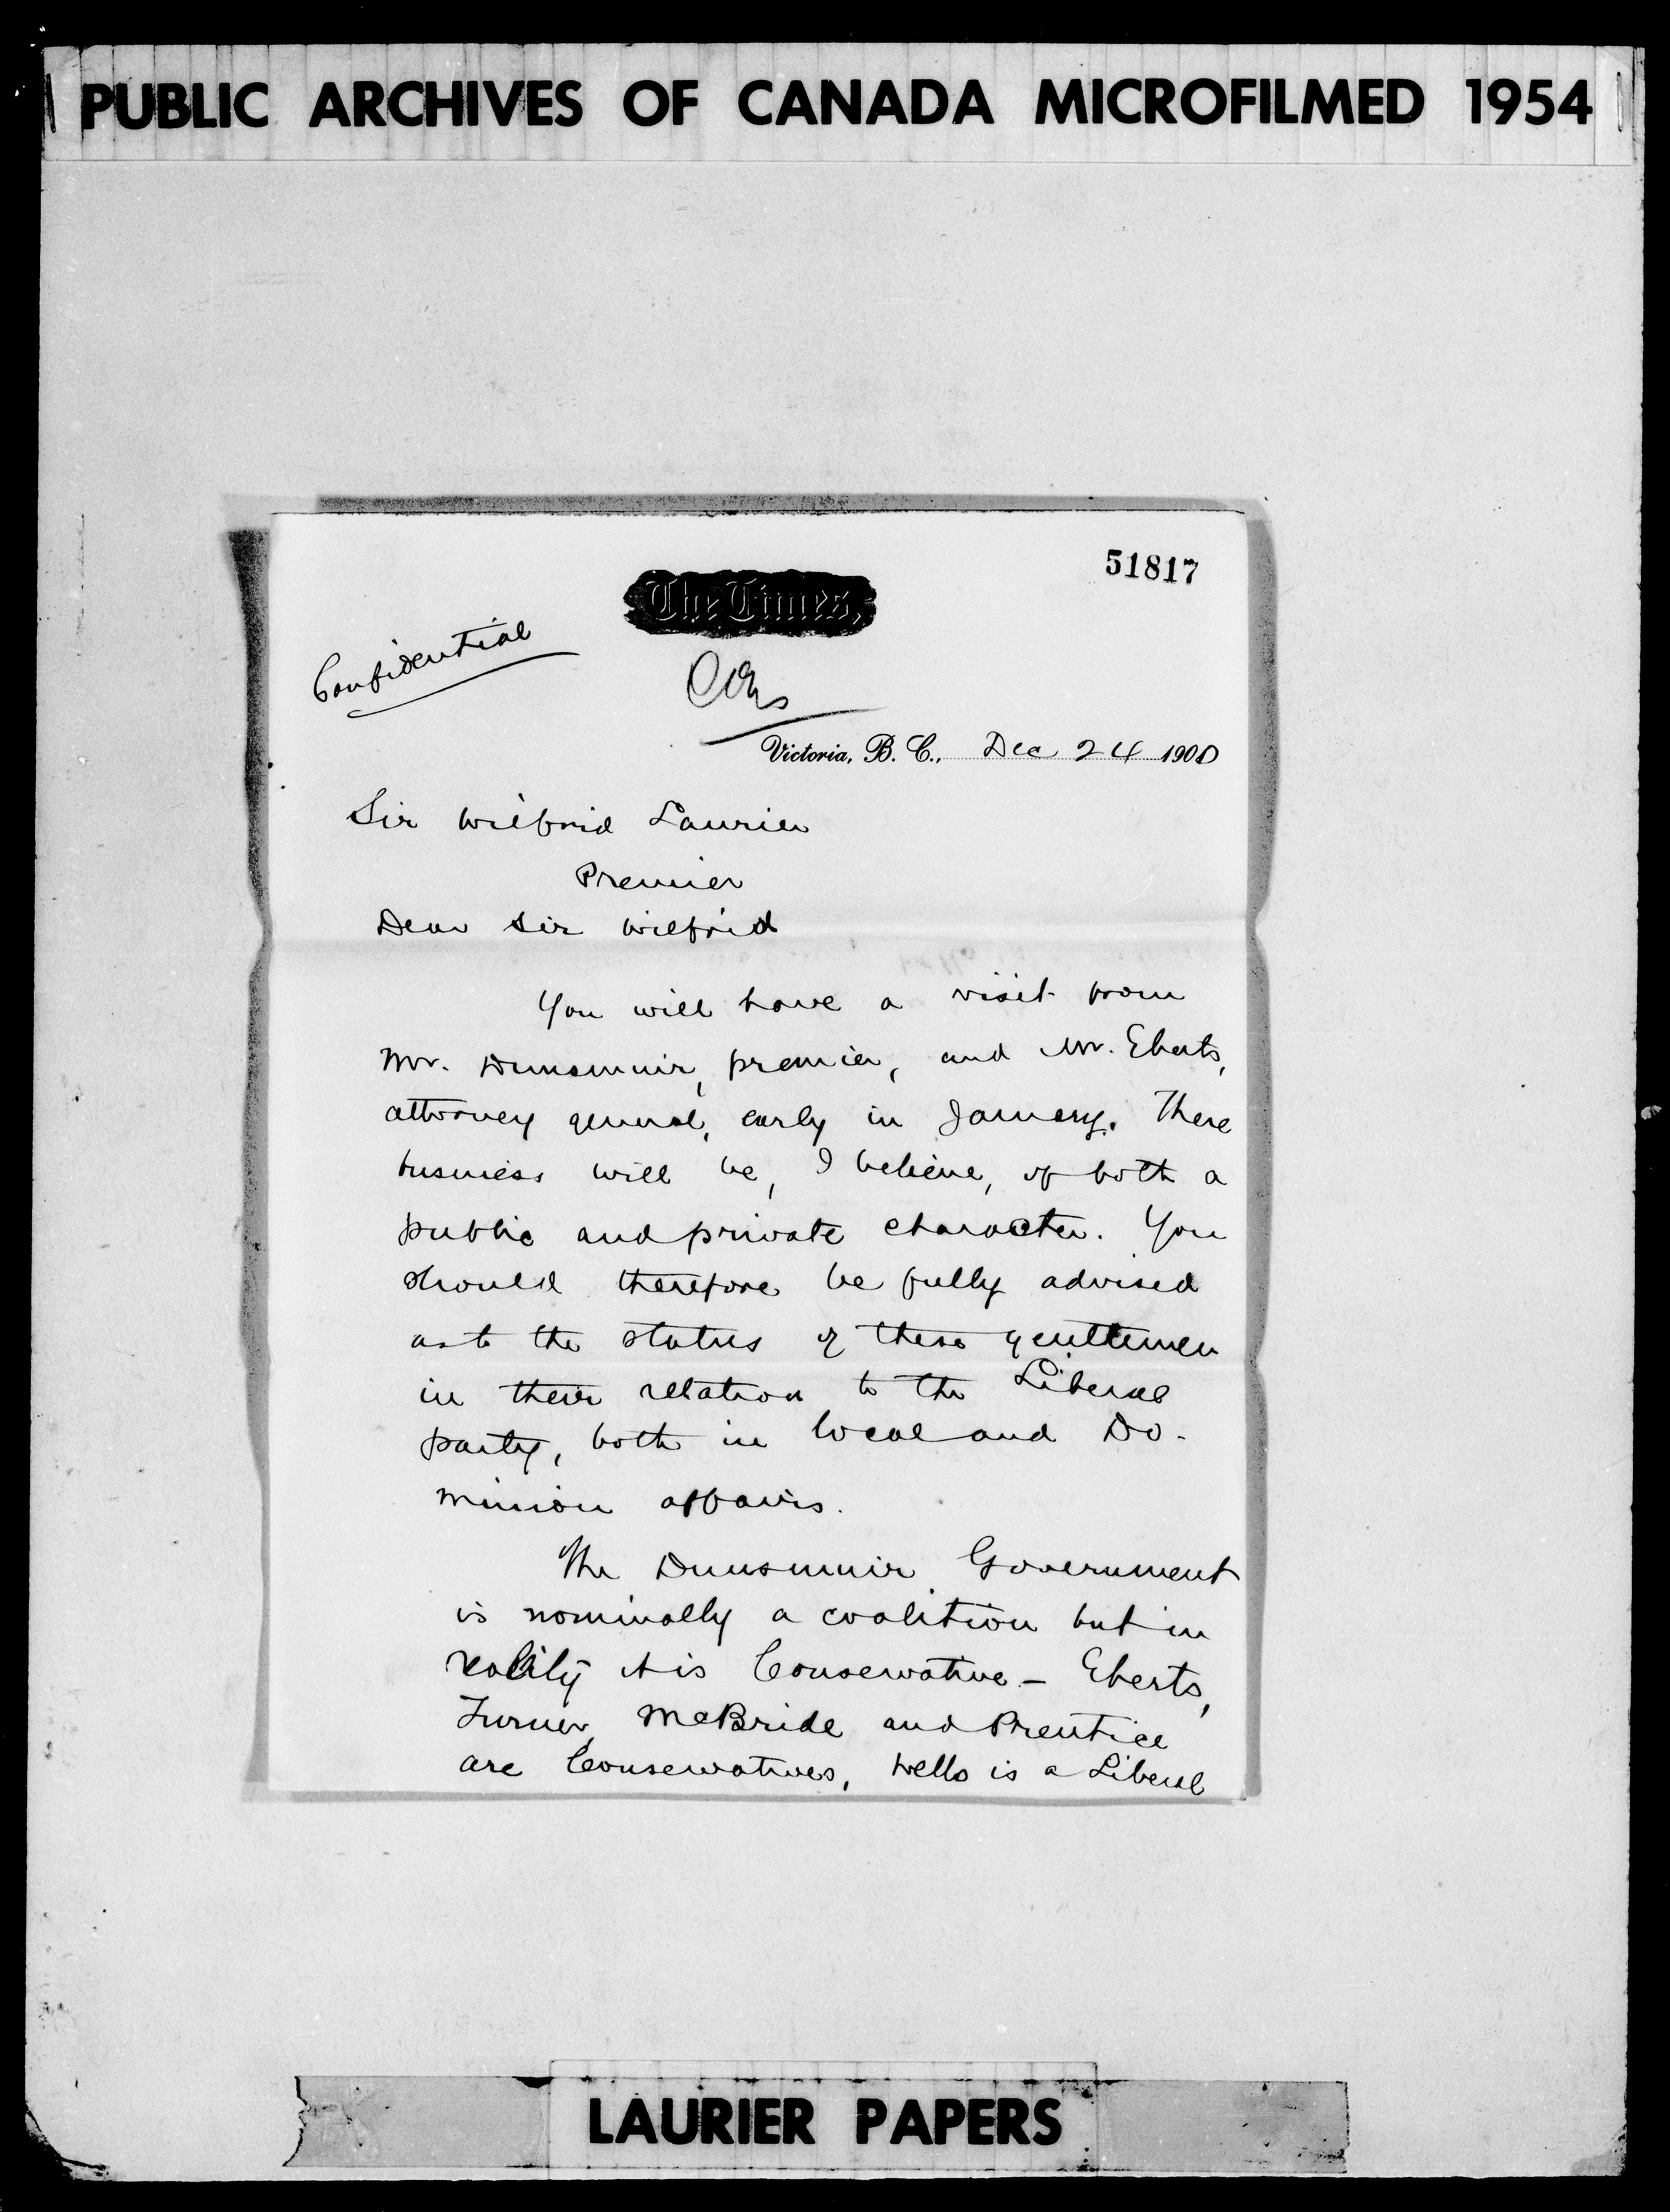 PUBLIC ARCHIVES OF CANADA MICROFILMED 1954
51817
The Times,
Confidential
Victoria, B. C., Dec 24 1900
Sir Wilfrid Laurier
Premier
Dear Sir Wilfrid
You will have a visit from
Mr. Dunsmuir, premier, and Mr. Eberts,
attorney general, early in January. There
business will be, I believe, of both a
public and private character. You
should therefore be fully advised
as to the status of these gentlemen
in their relation to the Liberal
party, both in local and Do-
minion affairs.
The Dunsmuir Government
is nominally a coalition but in
reality it is Conservative - Eberts,
Turner, McBride and Prentice
are Conservatives, Wells is a Liberal
LAURIER PAPERS